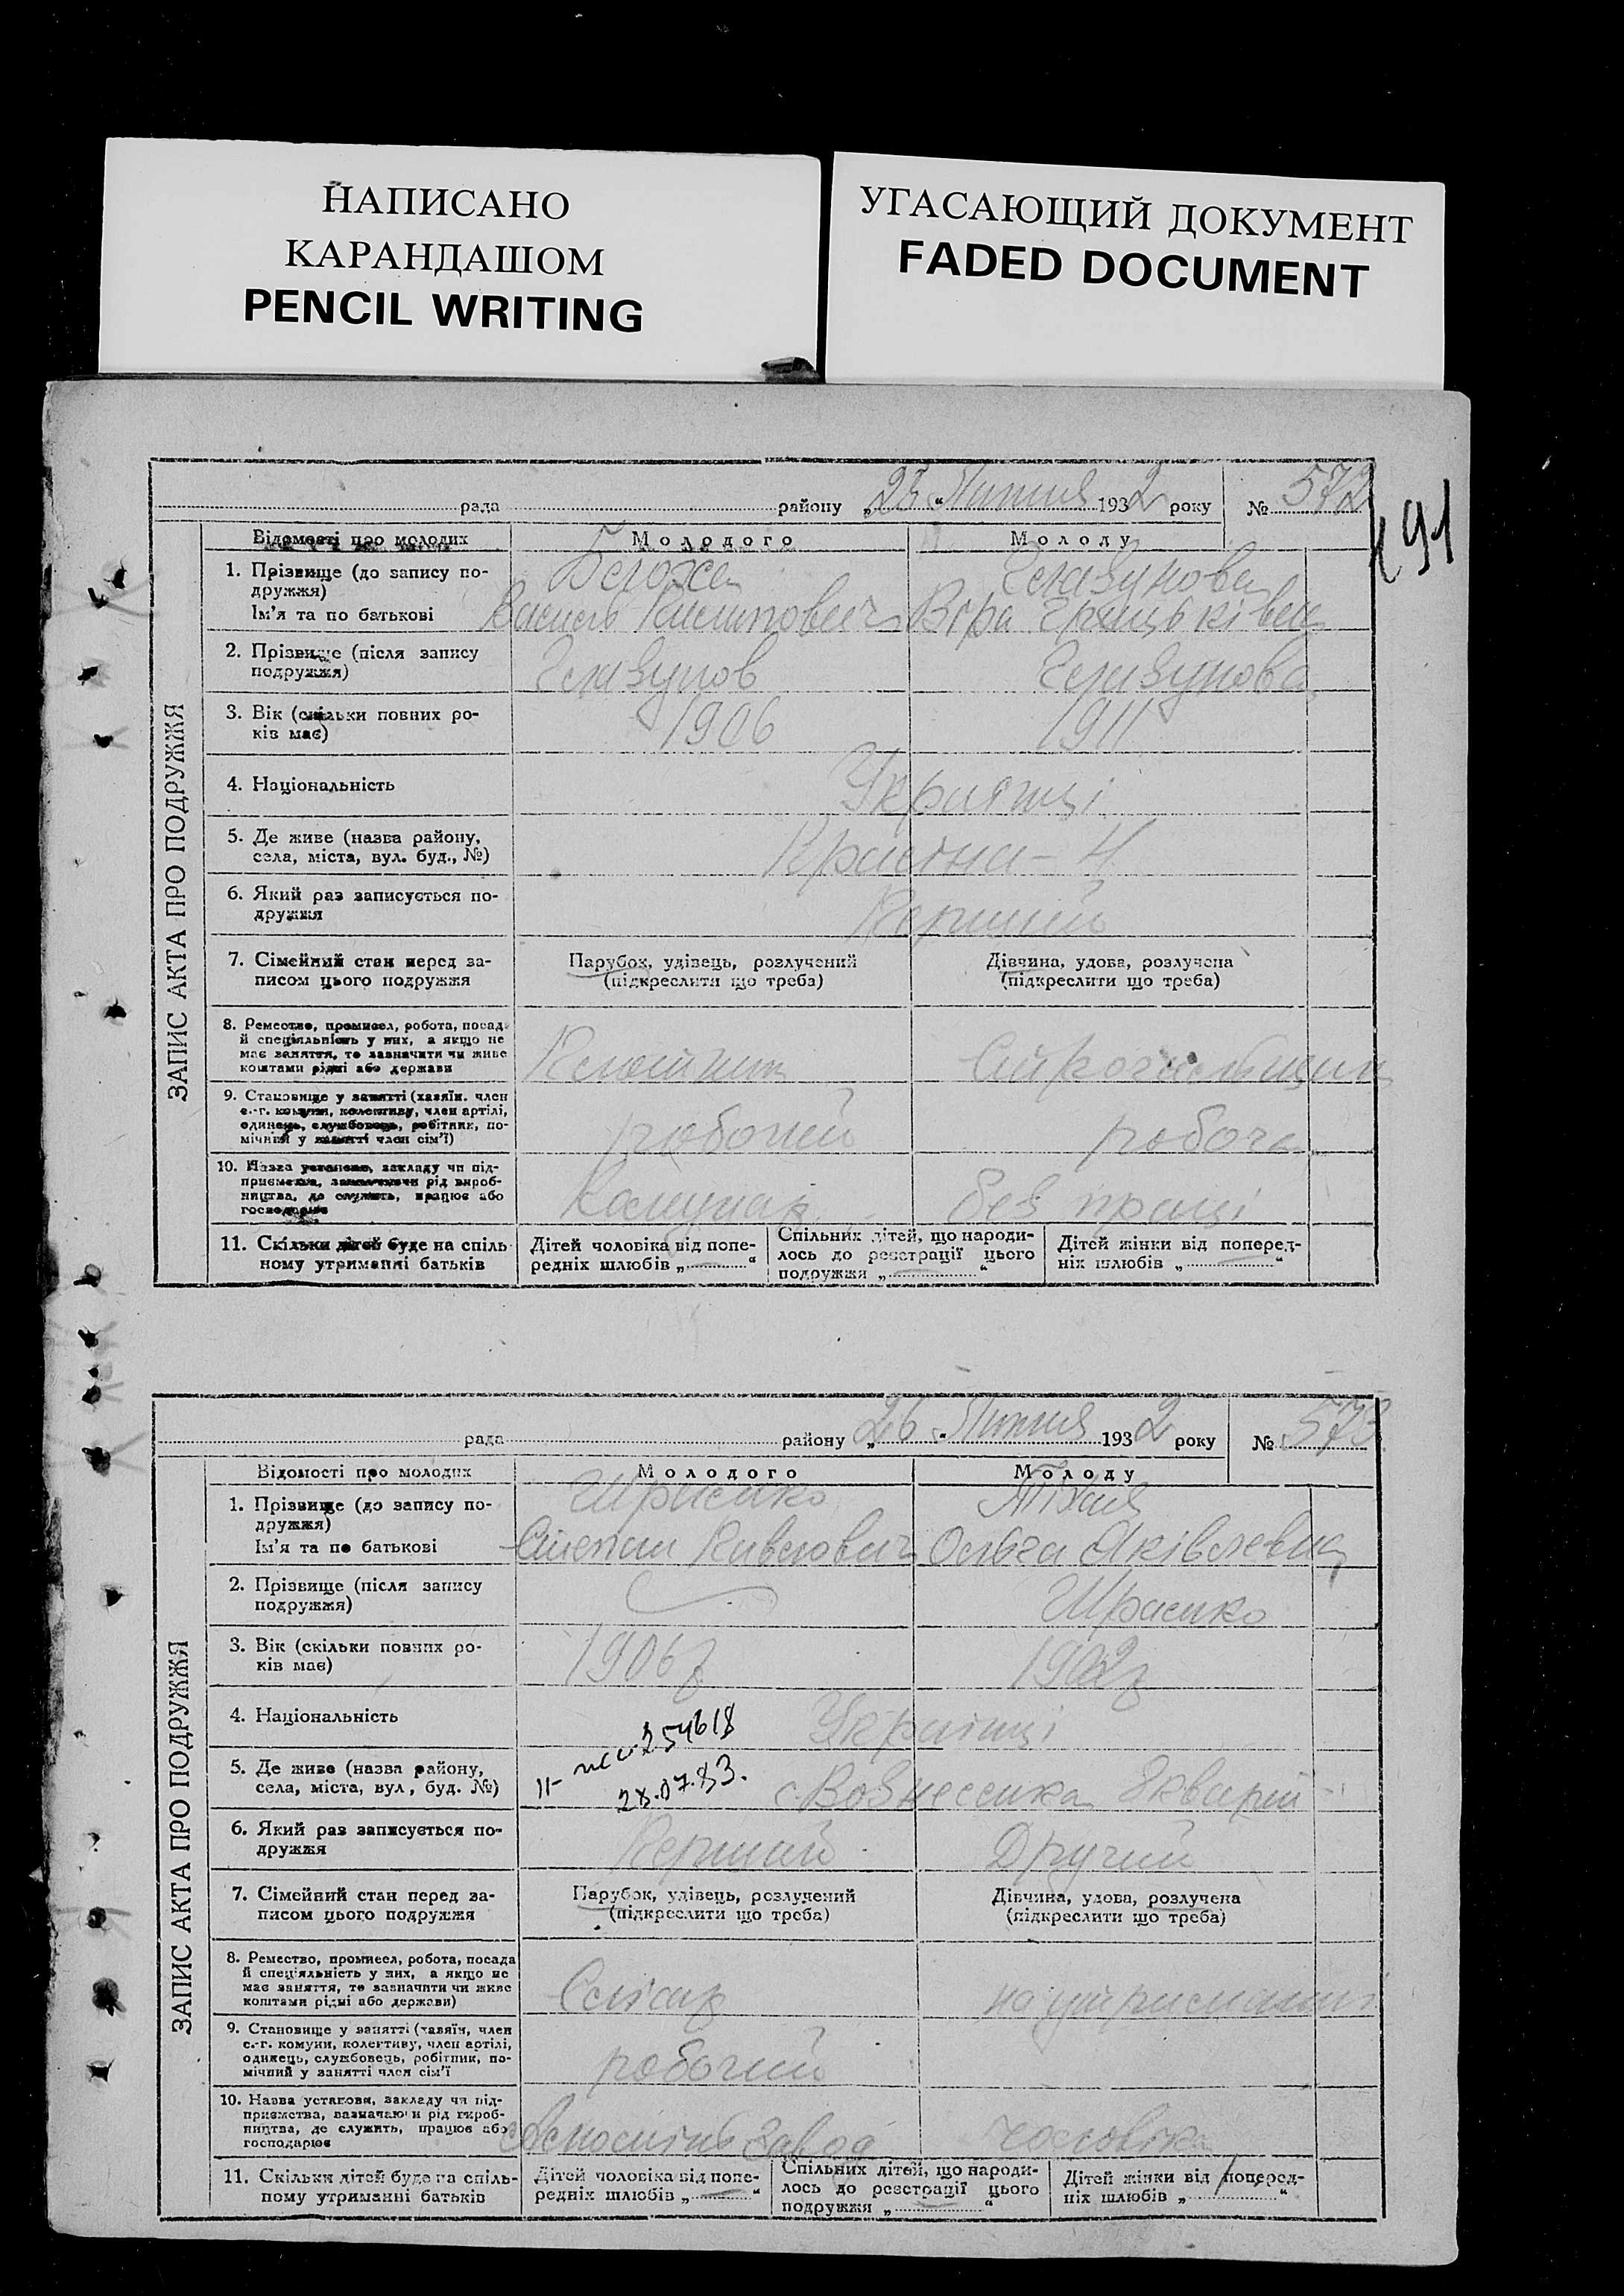 НАПИСАНО
КАРАНДАШОМ
PENCIL WRITING
УГАСАЮЩИЙ ДОКУМЕНТ
FADED DOCUMENT
491
рада району „ 193 2 року № 572
ЗАПИС АКТА ПРО ПОДРУЖЖЯ
Відомості про молодих Молодого Молоду
1. Прізвище (до запису по-
дружжя)
Ім'я та по батькові Віра
2. Прізвище (після запису
подружжя) Глазунов Глазунова
3. Вік (скільки повних ро-
ків має) 1906 1911
4. Національність Українці
5. Де живе (назва району,
села, міста, вул. буд., №)
6. Який раз записується по-
дружжя Перший
7. Сімейний стан перед за-
писом цього подружжя
Парубок, удівець, розлучений
(підкреслити що треба)
Дівчина, удова, розлучена
(підкреслити що треба)
8. Ремество, промисел, робота, посада
й спеціяльність у них, а якщо не
має заняття, то зазначити чи живе
коштами рідні або держави
9. Становище у занятті (хазяїн, член
с.-г. комуни, колективу, член артілі,
одинець, службовець, робітник, по-
мічний у занятті член сім'ї) робочий робоча
10. Назва установи, закладу чи під-
приємства, зазначаючи рід вироб-
ництва, де служить, працює або
господарює Комунар без праці
11. Скільки дітей буде на спіль-
ному утриманні батьків
Дітей чоловіка від попе-
редніх шлюбів „ “
Спільних дітей, що народи-
лось до реєстрації цього
подружжя „ “
Дітей жінки від поперед-
ніх шлюбів „ “
рада району „ 26 “ 193 2 року № 573
ЗАПИС АКТА ПРО ПОДРУЖЖЯ
Відомості про молодих Молодого Молоду
1. Прізвище (до запису по-
дружжя)
Ім'я та по батькові Степан Павлович Ольга Яківлевна
2. Прізвище (після запису
подружжя)
3. Вік (скільки повних ро-
ків має) 1906р 1902р
4. Національність Українці
254618
28.07.83.
5. Де живе (назва району,
села, міста, вул, буд. №) с. Вознесенка
6. Який раз записується по-
дружжя Перший Другий
7. Сімейний стан перед за-
писом цього подружжя
Парубок, удівець, розлучений
(підкреслити що треба)
Дівчина, удова, розлучена
(підкреслити що треба)
8. Ремество, промисел, робота, посада
й спеціяльність у них, а якщо не
має заняття, то зазначити чи живе
коштами рідні або держави) Слісар на утриманні
9. Становище у занятті (хазяїн, член
с.-г. комуни, колективу, член артілі,
одинець, службовець, робітник, по-
мічний у занятті член сім'ї робочий
10. Назва установи, закладу чи під-
приємства, зазначаючи рід вироб-
ництва, де служить, працює або
господарює завод чоловіка
11. Скільки дітей буде на спіль-
ному утриманні батьків
Дітей чоловіка від попе-
редніх шлюбів „ “
Спільних дітей, що народи-
лось до реєстрації цього
подружжя „ “
Дітей жінки від поперед-
ніх шлюбів „ “